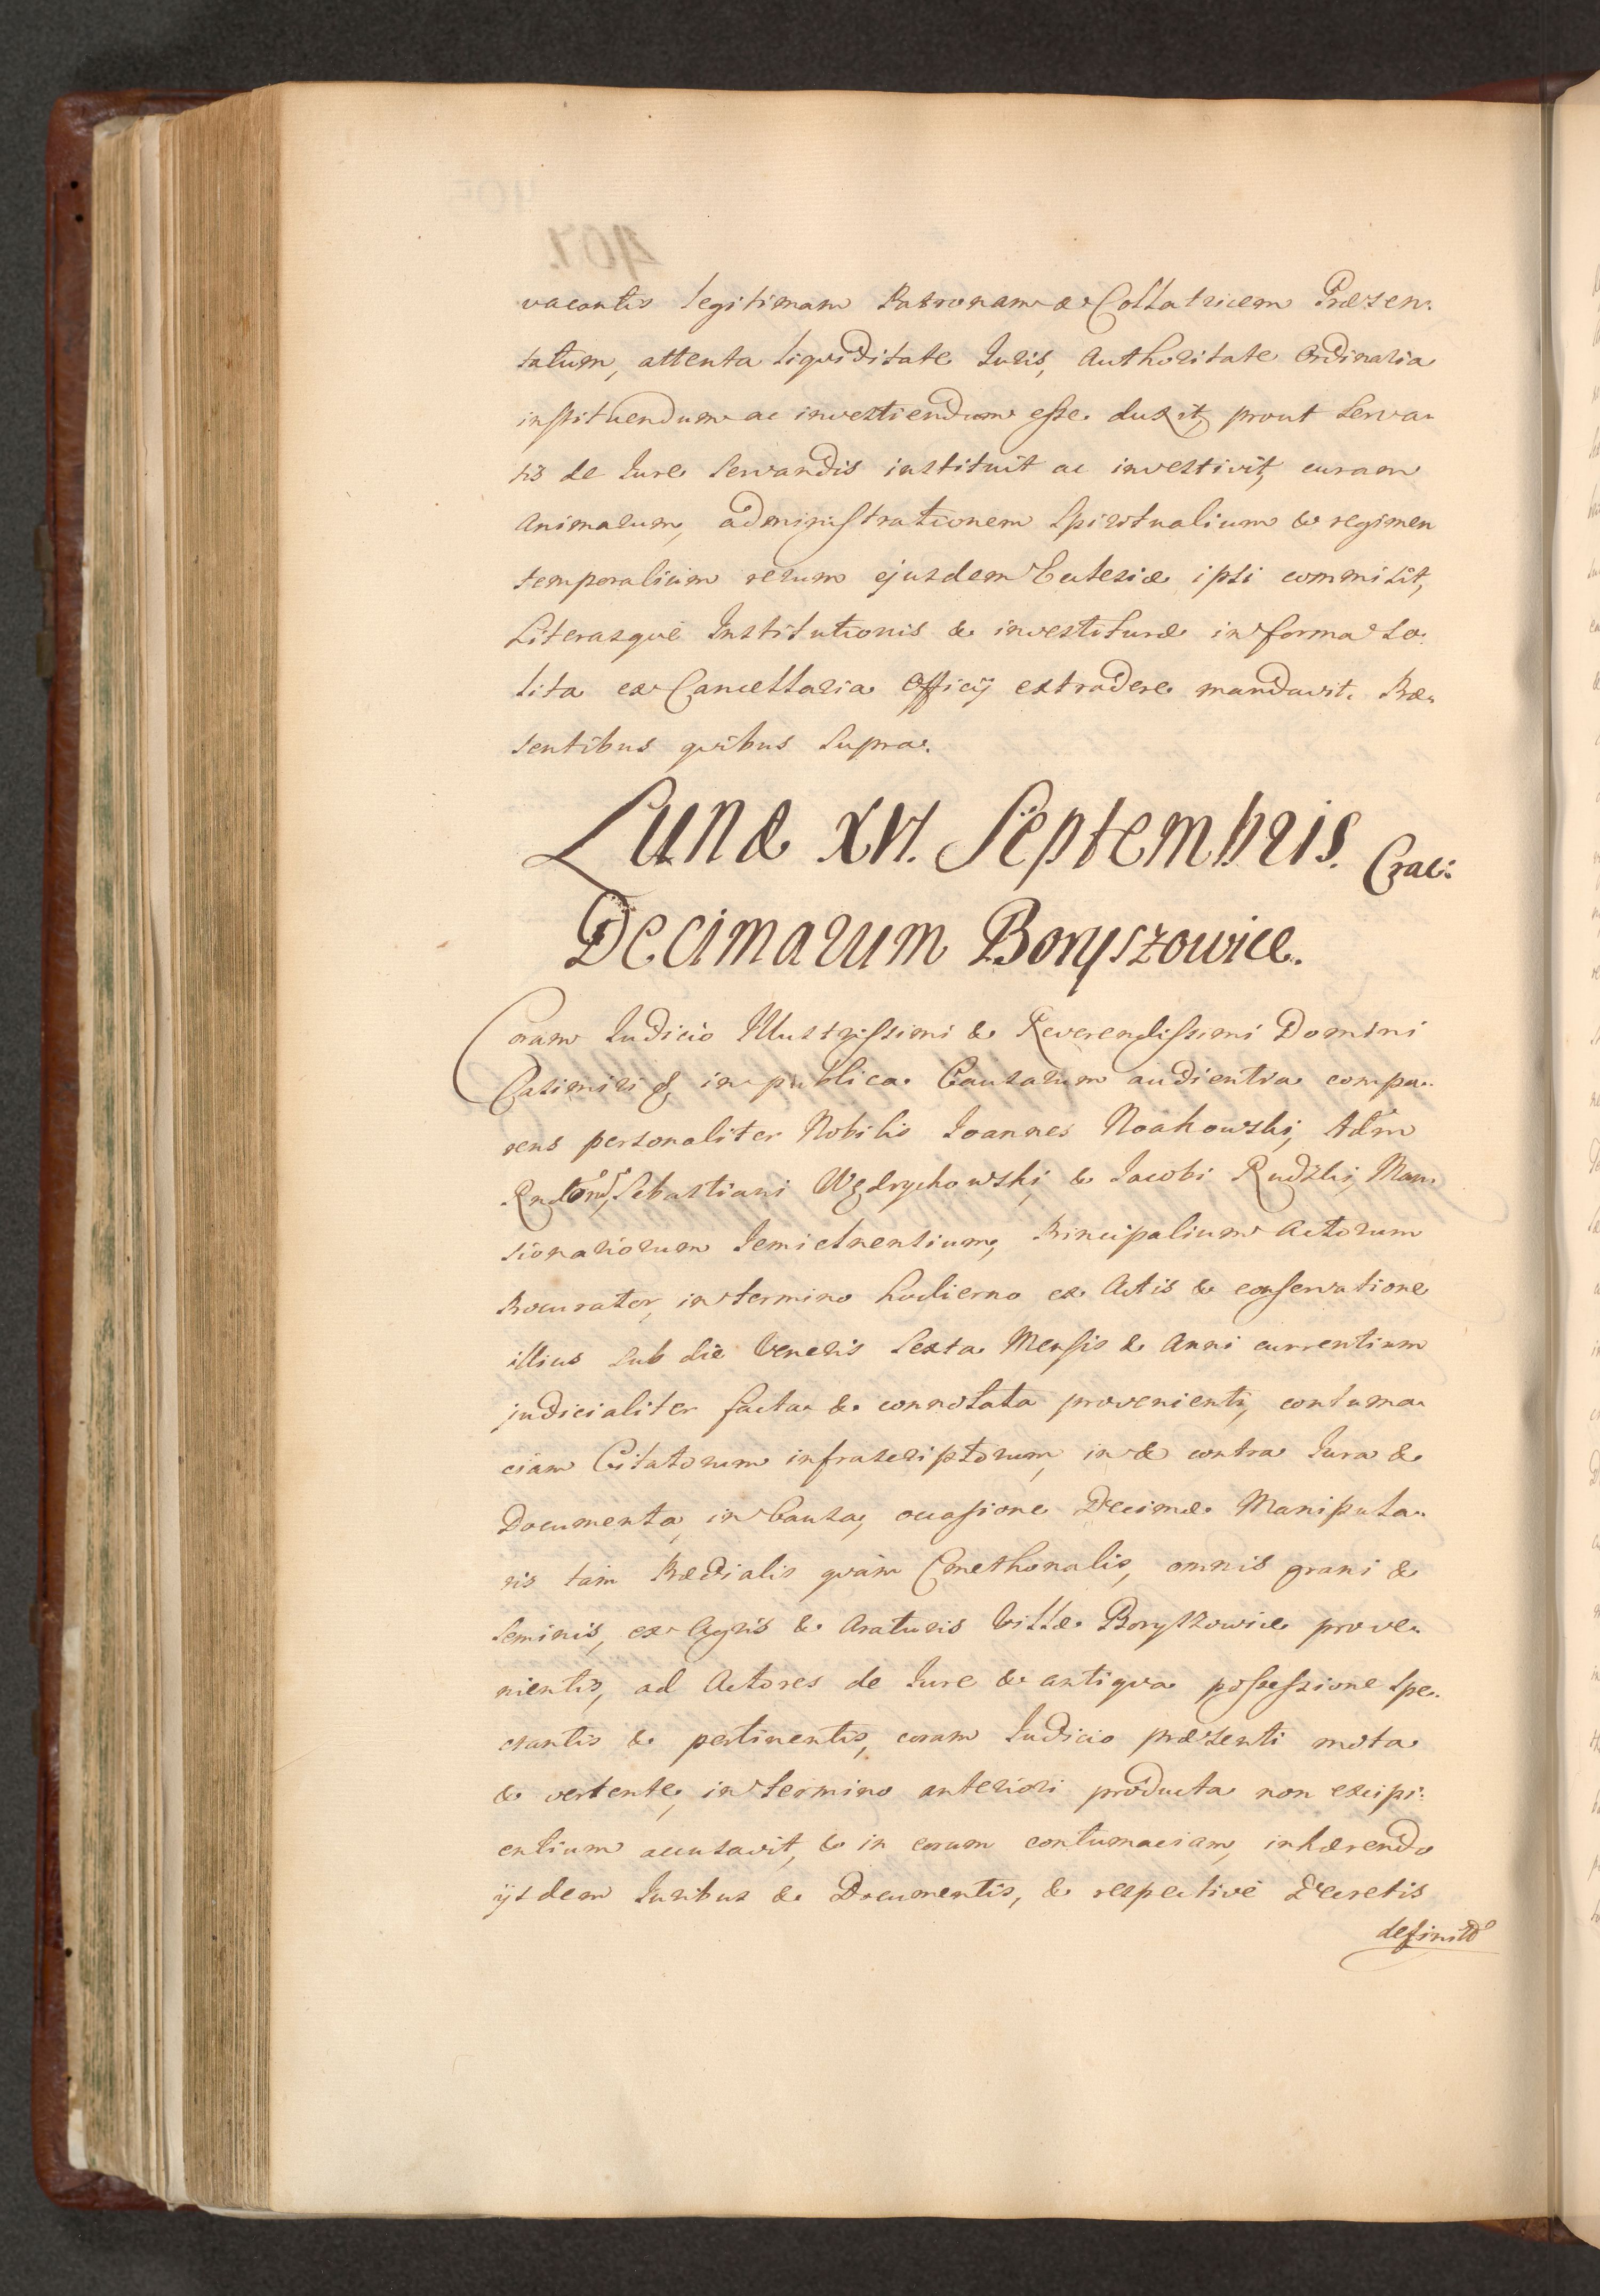 vacantis legitimam Patronam & Collatricem Præsen:
tatum, attenta liquiditate Iuris, Authoritate Ordinaria
instituendum ac investiendum esse duxit, prout Serva:
tis de Iure Servandis instituit ac investivit, curam
Animarum, administrationem Spiritualium & regimen
temporalium rerum ejusdem Ecclesiæ ipsi commisit,
Literasque Institutionis & investituræ in forma so:
lita ex Cancellaria Officij extradere mandavit. Præ:
sentibus quibus supra.
Lunæ XVI. Septembris. Crac:
Decimarum Boryszowice.
Coram Iudicio Illustrissimi & Reverendissimi Domini
Casimiri &, in publica Causarum audientia compa:
rens personaliter Nobilis Ioannes Noakowski, Adm
Rndorum Sebastiani Wędrychowski & Iacobi Rudzki, Man:
sionariorum Xemicknensium, Principalium Actorum
Procurator, in termino hodierno ex Actis & conservatione
illius sub die Veneris Sexta Mensis & Anni currentium
judicialiter facta & connotata provenienti, contuma:
ciam Citatorum infrascriptorum, in & contra Iura &
Documenta, in Causa, occasione Decimæ Manipula:
ris tam Prædialis quàm Cmethonalis, omnis grani &
Seminis, ex Agris & Araturis Villæ Boryszowice prove:
nientis, ad Actores de Iure & antiqva possessione spe:
ctantis & pertinentis, coram Iudicio præsenti mota
& vertente, in termino anteriori producta non excipi:
entium accusavit, & in eorum contumaciam, inhærendo
ijsdem Iuribus & Documentis, & respective Decretis
definitõ